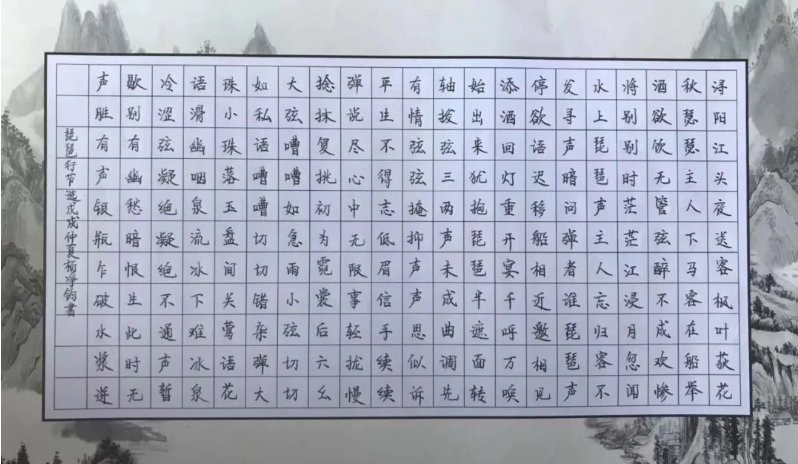 浔阳江头夜送客枫叶荻花
秋瑟瑟主人下马客在船举
酒欲饮无管弦醉不成欢惨
将别别时茫茫江浸月忽闻
水上琵琶声主人忘归客不
发寻声暗问弹者谁琵琶声
停欲语迟移船相近邀相见
添酒回灯重开宴千呼万唤
始出来犹抱琵琶半遮面转
轴拨弦三两声未成曲调先
有情弦弦掩抑声声思似诉
平生不得志低眉信手续续
弹说尽心中无限事轻拢慢
捻抹复挑初为霓裳后六幺
大弦嘈嘈如急雨小弦切切
如私语嘈嘈切切错杂弹大
珠小珠落玉盘间关莺语花
语滑幽咽泉流冰下难冰泉
冷涩弦凝绝凝绝不通声暂
歇别有幽愁暗恨生此时无
声胜有声银瓶乍破水浆迸
琵琶行节选戊戌仲夏书